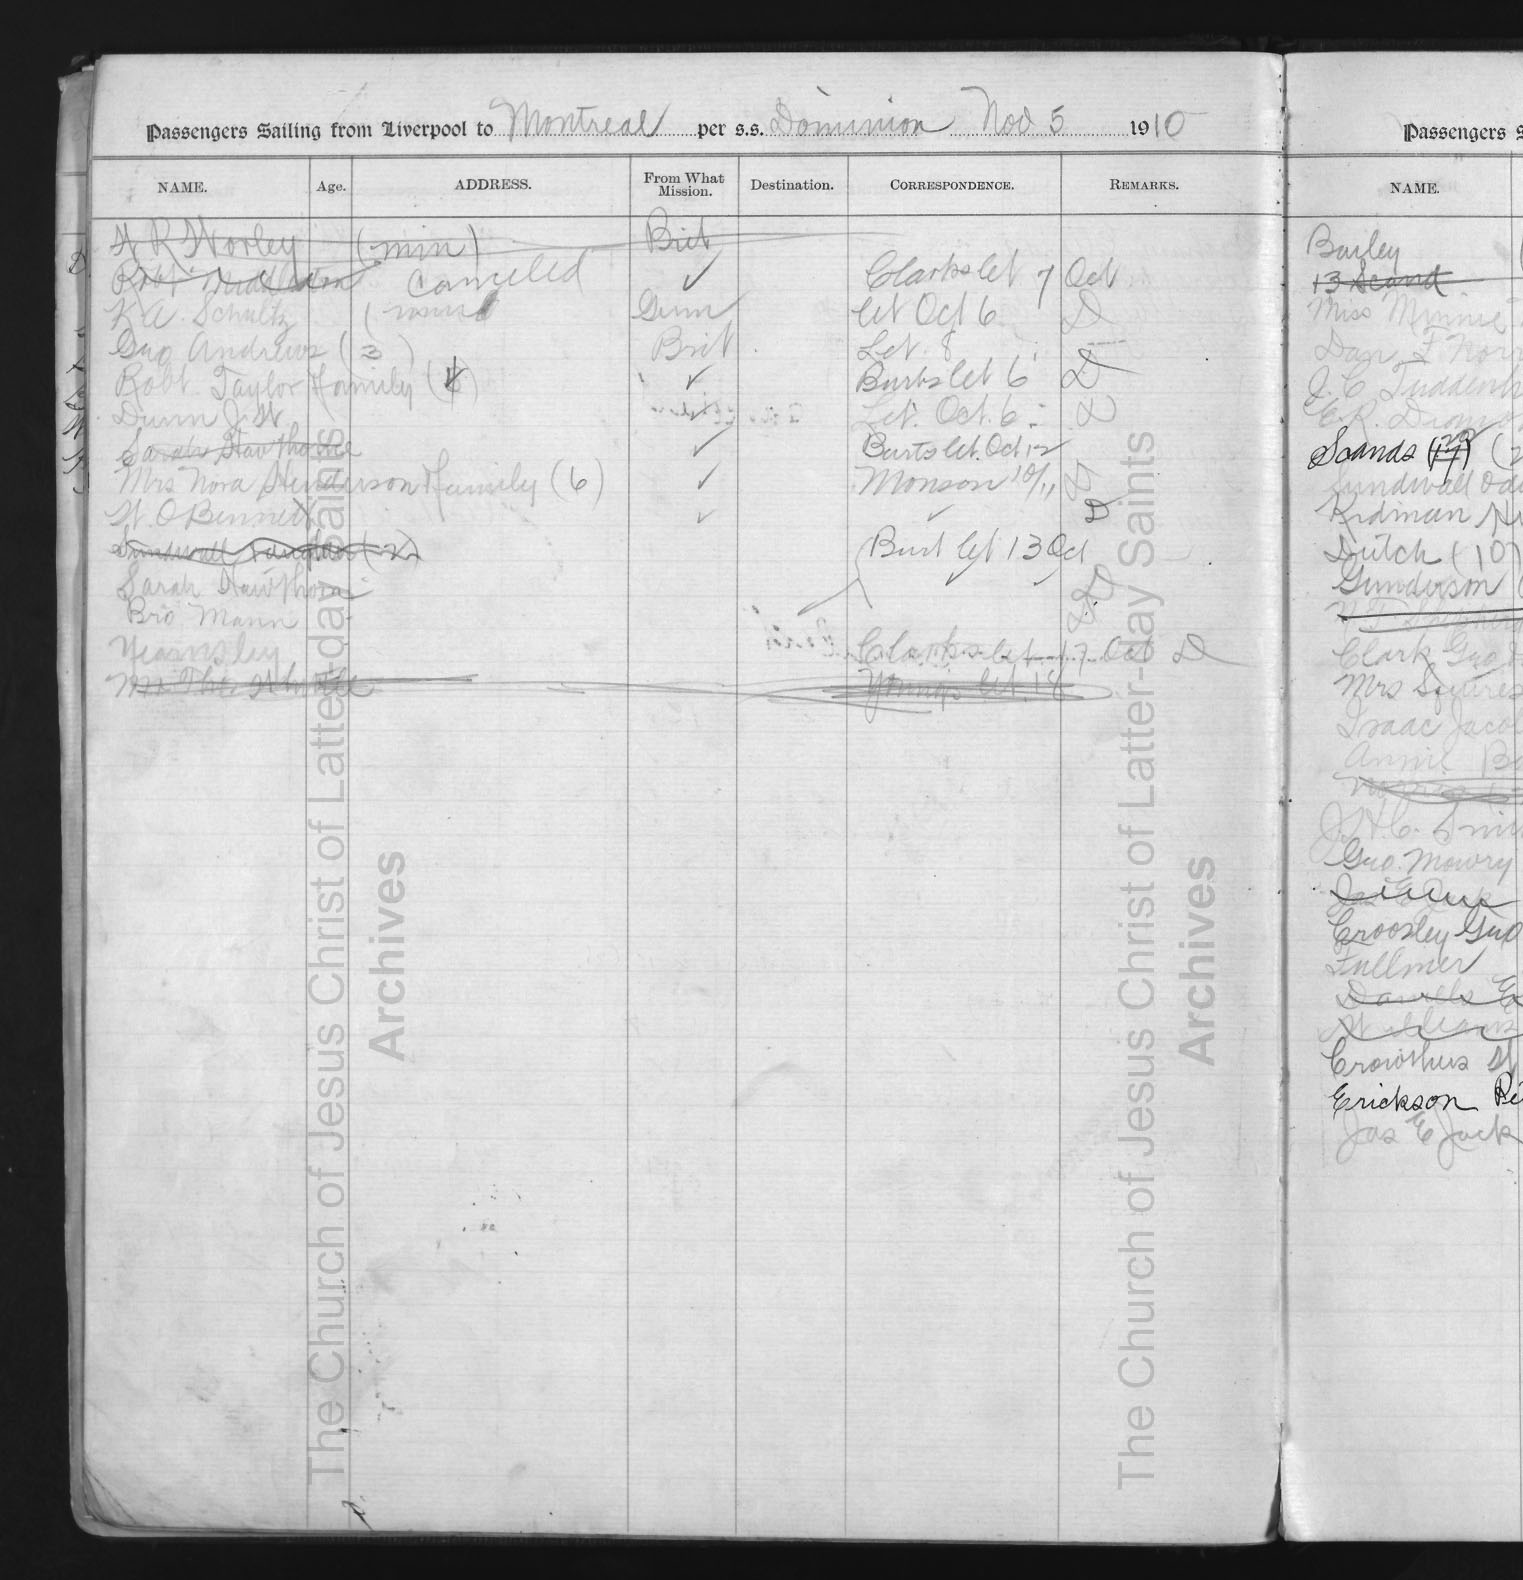 Passengers Sailing from Liverpool to Montreal per s.s. Dominion Nov 5 1910
NAME. Age. ADDRESS. From What Mission. Destination. CORRESPONDENCE. REMARKS.
W R Worley (min) Brit
Robt Middleton Canceled ✓ Clarks let 7 Oct
K A. Schultz Germ let Oct 6 D
Geo Andrews (3) Brit Let. 8
Robt. Taylor Family ✓ Burts let 6 D
Dunn J. W. Let. Oct. 6 D
Sarah Hawthorne ✓ Burts let. Oct 12
Mrs Nora Henderson Family (6) ✓ Monson 10/11 D
W. O Bennett ✓ ✓ D
Sundwall (2) Burt let 13 Oct
Sarah Hawthorne
Bro Mann
Yearnsley Clarks let 17 Oct D
Young's let 18
Passengers S
NAME.
Barley
13 Scand
Miss Minnie
Dan. F Norr
J. C. Tuddenh
E. R. Dimo
Scands
Sundwall
Erdman
Dutch (10)
Gunderson
Clark Geo
Mrs Squires
Isaac Jacob
Annie Ba
J. H C.
Geo. Mowry
Croosley Geo
Fullmer
Daniels
Crowthers W
Erickson
Jas E Jack
The Church of Jesus Christ of Latter-day Saints
Archives
The Church of Jesus Christ of Latter-day Saints
Archives